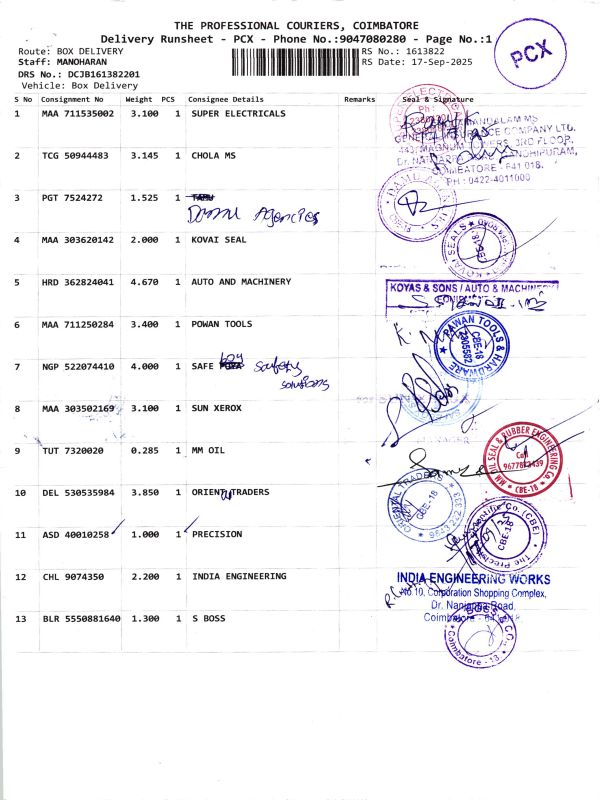 THE PROFESSIONAL COURIERS, COIMBATORE
Delivery Runsheet - PCX - Phone No.:9047080280 - Page No.:1
Route: BOX DELIVERY
RS No.: 1613822
Staff: MANOHARAN
RS Date: 17-Sep-2025
DRS No.: DCJB161382201
Vehicle: Box Delivery
PCX
S No Consignment No Weight PCS Consignee Details Remarks Seal & Signature
1 MAA 711535002 3.100 1 SUPER ELECTRICALS
2 TCG 50944483 3.145 1 CHOLA MS
MANDALAM MS
COMPANY LTD.
3RD FLOOR,
COIMBATORE - 641 018.
PH : 0422-4011000
3 PGT 7524272 1.525 1
Damu Agencies
4 MAA 303620142 2.000 1 KOVAI SEAL
KOVAI SEALS
5 HRD 362824041 4.670 1 AUTO AND MACHINERY
KOYAS & SONS / AUTO & MACHINERY
6 MAA 711250284 3.400 1 POWAN TOOLS
PAWAN TOOLS & HARDWARE
2305582
CBE-18
7 NGP 522074410 4.000 1 SAFE
safety
solutions
8 MAA 303502169 3.100 1 SUN XEROX
9 TUT 7320020 0.285 1 MM OIL
MM OIL SEAL & RUBBER ENGINEERING Co
Cell
CBE-18
10 DEL 530535984 3.850 1 ORIENT TRADERS
ORIENTAL TRADERS
CBE-18
11 ASD 40010258 1.000 1 PRECISION
The Precision Scientific Co. (CBE)
CBE-18
12 CHL 9074350 2.200 1 INDIA ENGINEERING
INDIA ENGINEERING WORKS
No.10, Corporation Shopping Complex,
Dr. Nanjappa Road,
Coimbatore
13 BLR 5550881640 1.300 1 S BOSS
BOSS & CO.
Coimbatore - 18